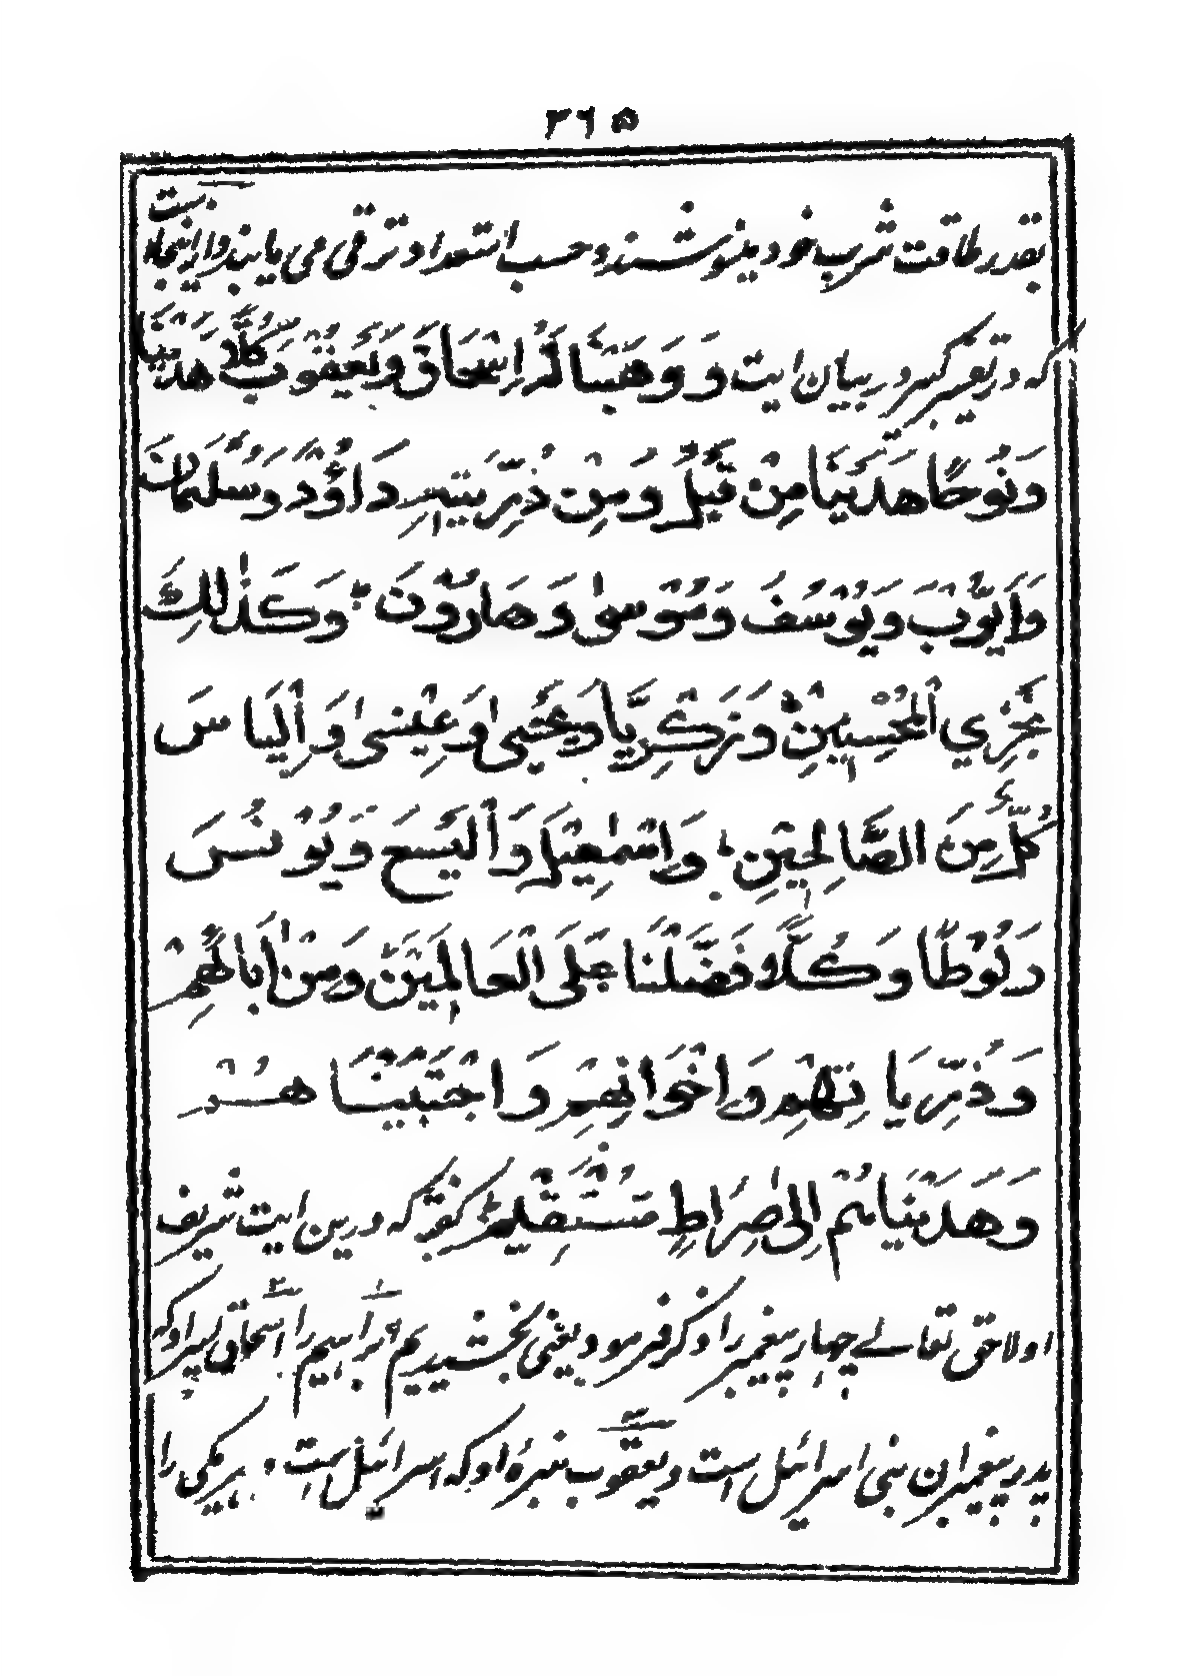 ۳۶۵
بقدر طاقت شرب خود مینوشند و حسب استعداد ترقی می یابند و از اینجاست
که در تفسیر کبیر در بیان ایت وَوَهَبْنَا لَهُ اِسْحَاقَ وَيَعْقُوْبَ كُلًّا هَدَيْنَا
وَنُوحًا هَدَيْنَا مِنْ قَبْلُ وَمِنْ ذُرِّيَّتِهِ دَاوُدَ وَسُلَيْمَانَ
وَاَيُّوْبَ وَيُوْسُفَ وَمُوْسٰى وَهَارُوْنَ وَكَذٰلِكَ
نَجْزِي الْمُحْسِنِيْنَ وَزَكَرِيَّا وَيَحْيٰى وَعِيْسٰى وَاِلْيَاسَ
كُلٌّ مِنَ الصَّالِحِيْنَ وَاِسْمٰعِيْلَ وَالْيَسَعَ وَيُوْنُسَ
وَلُوْطًا وَكُلًّا فَضَّلْنَا عَلَى الْعَالَمِيْنَ وَمِنْ اٰبَائِهِمْ
وَذُرِّيَاتِهِمْ وَاِخْوَانِهِمْ وَاجْتَبَيْنَا هُمْ
وَهَدَيْنَاهُمْ اِلٰى صِرَاطٍ مُسْتَقِيْمٍ گفته که درین ایت شریف
اولا حق تعالے چهار پیغمبر را ذکر فرمود یعنی بخشیدیم ابراهیم را اسحاق پسر او که
پدر پیغمبران بنی اسرائیل است و یعقوب نبیرهٔ او که اسرائیل است و هر یکی را